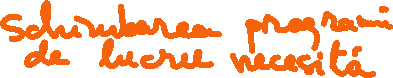 Schimbarea programii
de lucru necesită